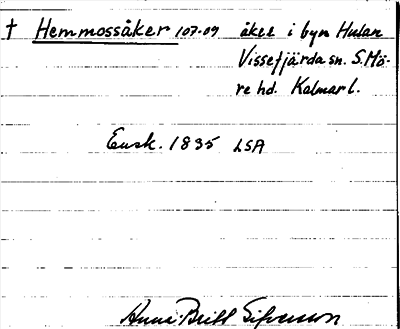 † Hemmossåker 107.09 åker i byn Hulan
Vissefjärda sn. S. Mö-
re hd. Kalmar l.
Ensk. 1835 LSA
Anna-Britt Sifversson